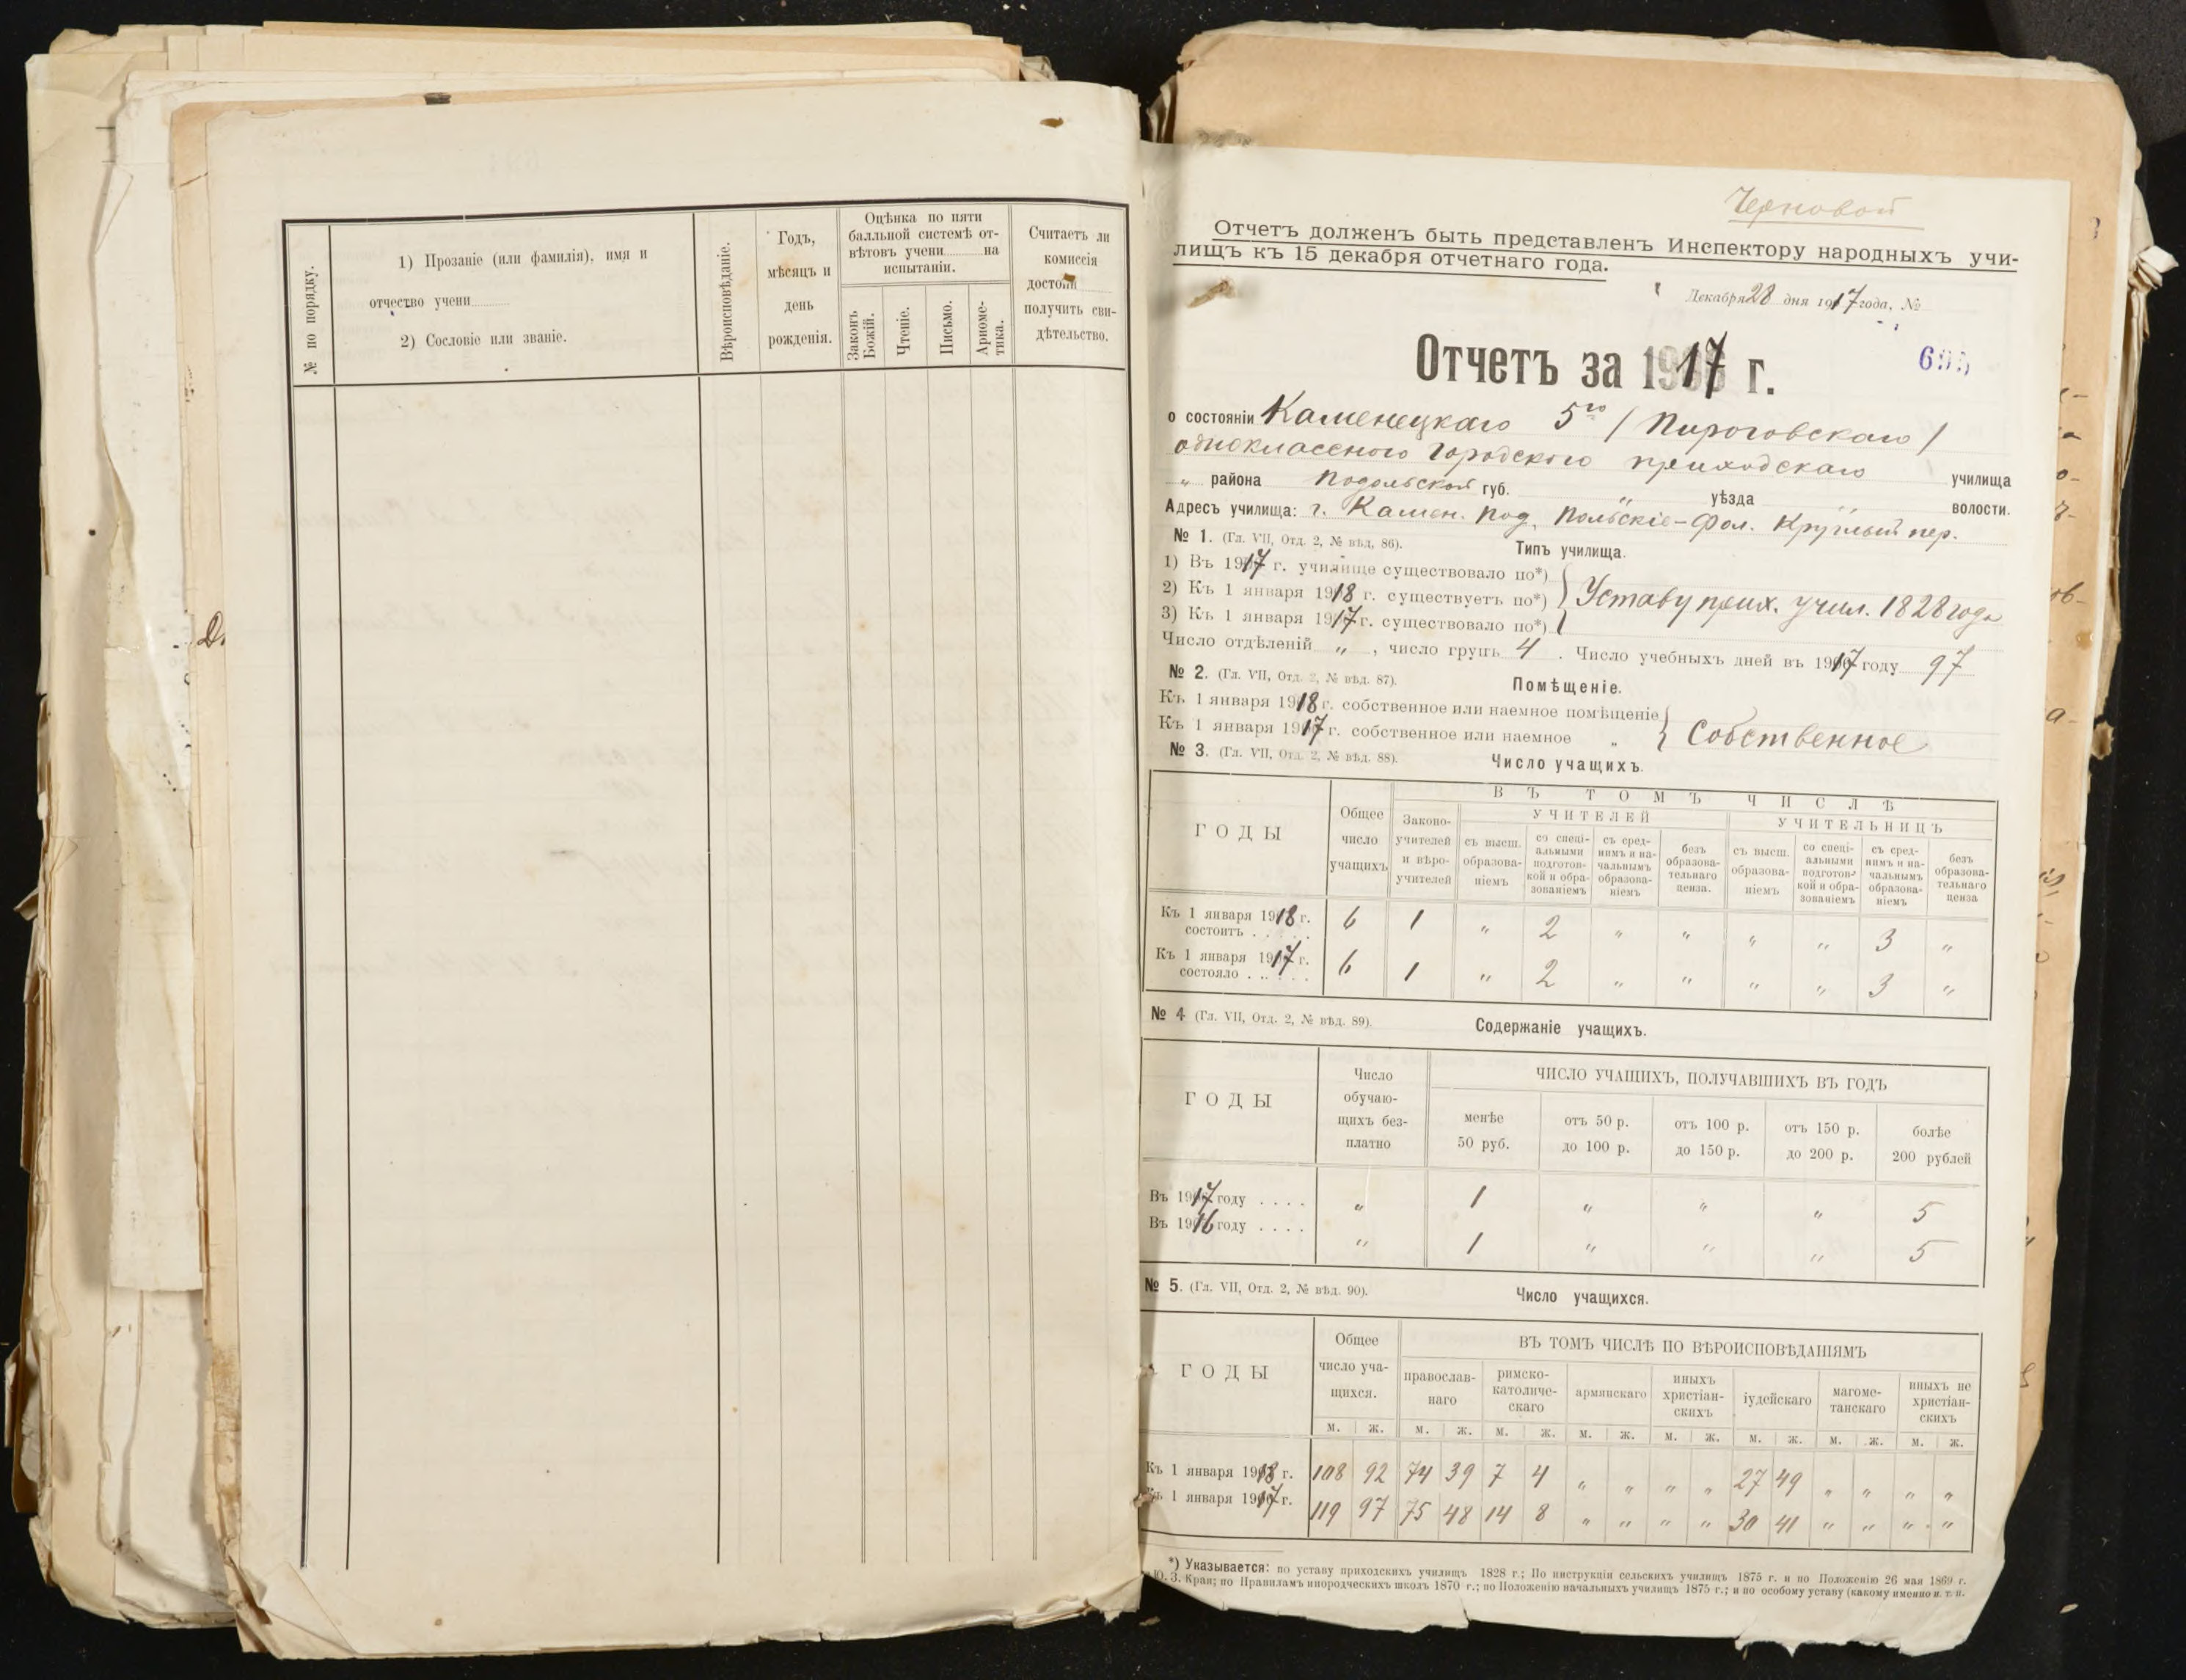 № по порядку.
1) Прозаніе (или фамилія), имя и
отчество учени
2) Сословіе или званіе.
Вѣроисповѣданіе.
Годъ,
мѣсяцъ и
день
рожденія.
Оцѣнка по пяти
балльной системѣ от-
вѣтовъ учени на
испытаніи.
Законъ Божій.
Чтеніе.
Письмо.
Ариѳме-
тика.
Считаетъ ли
комиссія
достойн
получить сви-
дѣтельство.
Черновой
Отчетъ долженъ быть представленъ Инспектору народныхъ учи-
лищъ къ 15 декабря отчетнаго года.
Декабря 28 дня 1917 года, №
Отчетъ за 1917 г.
695
о состояніи Каменецкаго 5го / Пироговскаго /
одноклассного Городского приходскаго училища
„ района Подольской губ. „ уѣзда „ волости.
Адресъ училища: г. Камен. Под. Польскіе-Фол. Круглый пер.
№ 1. (Гл. VII, Отд. 2, № вѣд. 86). Типъ училища.
1) Въ 1917 г. училище существовало по*)
2) Къ 1 января 1918 г. существуетъ по*) Уставу прих. учил. 1828 года
3) Къ 1 января 1917 г. существовало по*)
Число отдѣленій „ , число групъ 4 . Число учебныхъ дней въ 1917 году 97
№ 2. (Гл. VII, Отд. 2, № вѣд. 87). Помѣщеніе.
Къ 1 января 1918 г. собственное или наемное помѣщеніе
Къ 1 января 1917 г. собственное или наемное „ Собственное
№ 3. (Гл. VII, Отд. 2, № вѣд. 88). Число учащихъ.
ГОДЫ
Общее
число
учащихъ
ВЪ ТОМЪ ЧИСЛѢ
Законо-
учителей
и вѣро-
учителей
УЧИТЕЛЕЙ
съ высш.
образова-
ніемъ
со спеці-
альными
подготов-
кой и обра-
зованіемъ
съ сред-
нимъ и на-
чальнымъ
образова-
ніемъ
безъ
образова-
тельнаго
ценза.
УЧИТЕЛЬНИЦЪ
съ высш.
образова-
ніемъ
со спеці-
альными
подготов-
кой и обра-
зованіемъ
съ сред-
нимъ и на-
чальнымъ
образова-
ніемъ
безъ
образова-
тельнаго
ценза
Къ 1 января 1918 г.
состоитъ . . . . . 6 1 „ 2 „ „ „ „ 3 „
Къ 1 января 1917 г.
состояло . . . . . 6 1 „ 2 „ „ „ „ 3 „
№ 4 (Гл. VII, Отд. 2, № вѣд. 89). Содержаніе учащихъ.
ГОДЫ
Число
обучаю-
щихъ без-
платно
ЧИСЛО УЧАЩИХЪ, ПОЛУЧАВШИХЪ ВЪ ГОДЪ
менѣе
50 руб.
отъ 50 р.
до 100 р.
отъ 100 р.
до 150 р.
отъ 150 р.
до 200 р.
болѣе
200 рублей
Въ 1917 году . . . . „ 1 „ „ „ 5
Въ 1916 году . . . . „ 1 „ „ „ 5
№ 5. (Гл. VII, Отд. 2, № вѣд. 90). Число учащихся.
ГОДЫ
Общее
число уча-
щихся.
ВЪ ТОМЪ ЧИСЛѢ ПО ВѢРОИСПОВѢДАНІЯМЪ
православ-
наго
римско-
католиче-
скаго
армянскаго
иныхъ
христіан-
скихъ
іудейскаго
магоме-
танскаго
иныхъ не
христіан-
скихъ
м. ж. м. ж. м. ж. м. ж. м. ж. м. ж. м. ж. м. ж.
Къ 1 января 1918 г. 108 92 74 39 7 4 „ „ „ „ 27 49 „ „ „ „
Къ 1 января 1917 г. 119 97 75 48 14 8 „ „ „ „ 30 41 „ „ „ „
*) Указывается: по уставу приходскихъ училищъ 1828 г.; По инструкціи сельскихъ училищъ 1875 г. и по Положенію 26 мая 1869 г.
Ю. З. Края; по Правиламъ инородческихъ школъ 1870 г.; по Положенію начальныхъ училищъ 1875 г.; и по особому уставу (какому именно и. т. п.